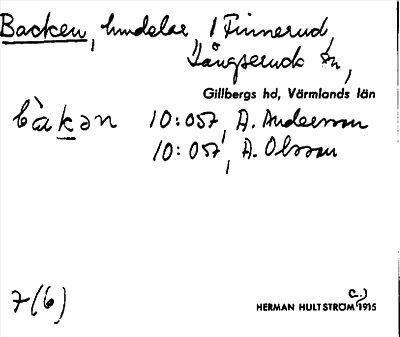 Backen, hmdelar, i Finnerud,
Långserud sn,
Gillbergs hd, Värmlands län
bàkən 10:057, A. Andersson
10:057, A. Olsson
7(6)
c.)
HERMAN HULTSTRÖM 1915